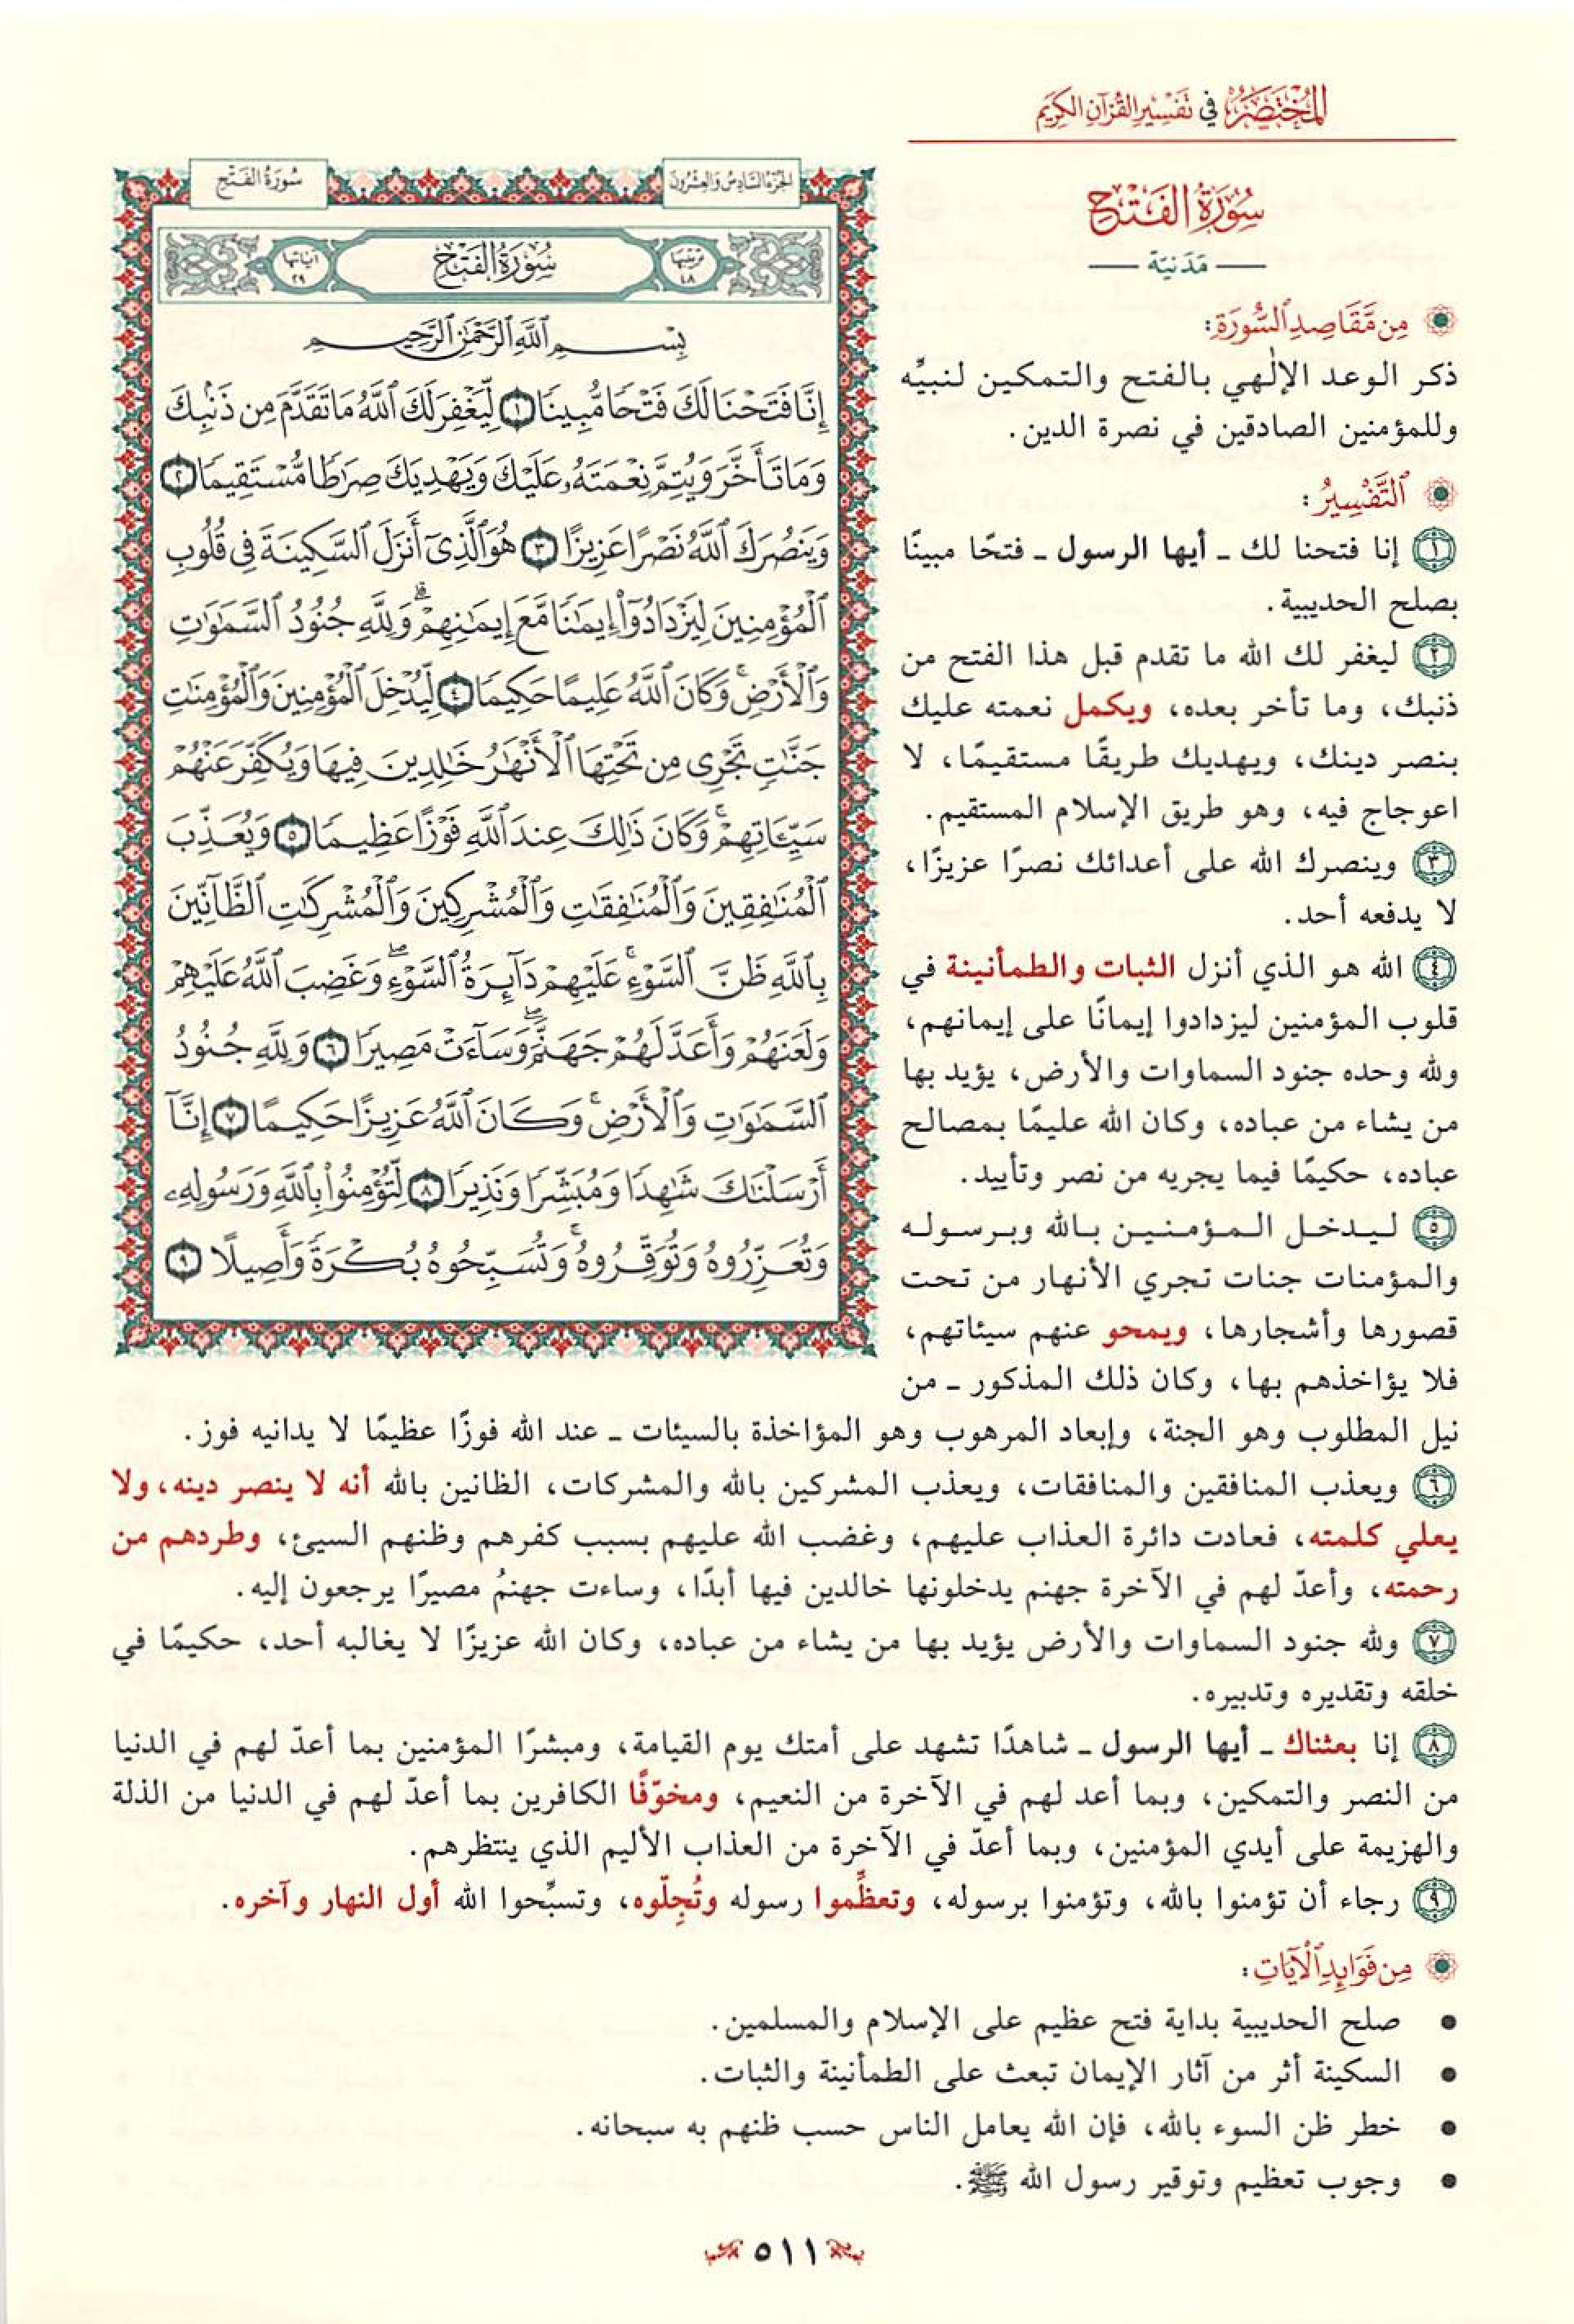 المختصر في تفسير القرآن الكريم
سُورَةُ الفَتْحِ
مَدَنيّة
مِن مَّقَاصِدِ ٱلسُّورَةِ:
ذكر الوعد الإلٰهي بالفتح والتمكين لنبيِّه
وللمؤمنين الصادقين في نصرة الدين.
ٱلتَّفْسِيرُ:
١ إنا فتحنا لك ـ أيها الرسول ـ فتحًا مبينًا
بصلح الحديبية.
٢ ليغفر لك الله ما تقدم قبل هذا الفتح من
ذنبك، وما تأخر بعده، ويكمل نعمته عليك
بنصر دينك، ويهديك طريقًا مستقيمًا، لا
اعوجاج فيه، وهو طريق الإسلام المستقيم.
٣ وينصرك الله على أعدائك نصرًا عزيزًا،
لا يدفعه أحد.
٤ الله هو الذي أنزل الثبات والطمأنينة في
قلوب المؤمنين ليزدادوا إيمانًا على إيمانهم،
ولله وحده جنود السماوات والأرض، يؤيد بها
من يشاء من عباده، وكان الله عليمًا بمصالح
عباده، حكيمًا فيما يجريه من نصر وتأييد.
٥ ليدخل المؤمنين بالله وبرسوله
والمؤمنات جنات تجري الأنهار من تحت
قصورها وأشجارها، ويمحو عنهم سيئاتهم،
فلا يؤاخذهم بها، وكان ذلك المذكور ـ من
الجزء السادس والعشرون
سُورَةُ الفَتْحِ
ترتيبها ٤٨
سُورَةُ الفَتْحِ
آياتها ٢٩
بِسْمِ ٱللَّهِ ٱلرَّحْمَٰنِ ٱلرَّحِيمِ
إِنَّا فَتَحْنَا لَكَ فَتْحًا مُّبِينًا ١ لِّيَغْفِرَ لَكَ ٱللَّهُ مَا تَقَدَّمَ مِن ذَنۢبِكَ
وَمَا تَأَخَّرَ وَيُتِمَّ نِعْمَتَهُۥ عَلَيْكَ وَيَهْدِيَكَ صِرَٰطًا مُّسْتَقِيمًا ٢
وَيَنصُرَكَ ٱللَّهُ نَصْرًا عَزِيزًا ٣ هُوَ ٱلَّذِىٓ أَنزَلَ ٱلسَّكِينَةَ فِى قُلُوبِ
ٱلْمُؤْمِنِينَ لِيَزْدَادُوٓا۟ إِيمَٰنًا مَّعَ إِيمَٰنِهِمْ ۗ وَلِلَّهِ جُنُودُ ٱلسَّمَٰوَٰتِ
وَٱلْأَرْضِ ۚ وَكَانَ ٱللَّهُ عَلِيمًا حَكِيمًا ٤ لِّيُدْخِلَ ٱلْمُؤْمِنِينَ وَٱلْمُؤْمِنَٰتِ
جَنَّٰتٍ تَجْرِى مِن تَحْتِهَا ٱلْأَنْهَٰرُ خَٰلِدِينَ فِيهَا وَيُكَفِّرَ عَنْهُمْ
سَيِّـَٔاتِهِمْ ۚ وَكَانَ ذَٰلِكَ عِندَ ٱللَّهِ فَوْزًا عَظِيمًا ٥ وَيُعَذِّبَ
ٱلْمُنَٰفِقِينَ وَٱلْمُنَٰفِقَٰتِ وَٱلْمُشْرِكِينَ وَٱلْمُشْرِكَٰتِ ٱلظَّآنِّينَ
بِٱللَّهِ ظَنَّ ٱلسَّوْءِ ۚ عَلَيْهِمْ دَآئِرَةُ ٱلسَّوْءِ ۖ وَغَضِبَ ٱللَّهُ عَلَيْهِمْ
وَلَعَنَهُمْ وَأَعَدَّ لَهُمْ جَهَنَّمَ ۖ وَسَآءَتْ مَصِيرًا ٦ وَلِلَّهِ جُنُودُ
ٱلسَّمَٰوَٰتِ وَٱلْأَرْضِ ۚ وَكَانَ ٱللَّهُ عَزِيزًا حَكِيمًا ٧ إِنَّآ
أَرْسَلْنَٰكَ شَٰهِدًا وَمُبَشِّرًا وَنَذِيرًا ٨ لِّتُؤْمِنُوا۟ بِٱللَّهِ وَرَسُولِهِۦ
وَتُعَزِّرُوهُ وَتُوَقِّرُوهُ ۚ وَتُسَبِّحُوهُ بُكْرَةً وَأَصِيلًا ٩
نيل المطلوب وهو الجنة، وإبعاد المرهوب وهو المؤاخذة بالسيئات ـ عند الله فوزًا عظيمًا لا يدانيه فوز.
٦ ويعذب المنافقين والمنافقات، ويعذب المشركين بالله والمشركات، الظانين بالله أنه لا ينصر دينه، ولا
يعلي كلمته، فعادت دائرة العذاب عليهم، وغضب الله عليهم بسبب كفرهم وظنهم السيئ، وطردهم من
رحمته، وأعدّ لهم في الآخرة جهنم يدخلونها خالدين فيها أبدًا، وساءت جهنمُ مصيرًا يرجعون إليه.
٧ ولله جنود السماوات والأرض يؤيد بها من يشاء من عباده، وكان الله عزيزًا لا يغالبه أحد، حكيمًا في
خلقه وتقديره وتدبيره.
٨ إنا بعثناك ـ أيها الرسول ـ شاهدًا تشهد على أمتك يوم القيامة، ومبشرًا المؤمنين بما أعدّ لهم في الدنيا
من النصر والتمكين، وبما أعد لهم في الآخرة من النعيم، ومخوّفًا الكافرين بما أعدّ لهم في الدنيا من الذلة
والهزيمة على أيدي المؤمنين، وبما أعدّ في الآخرة من العذاب الأليم الذي ينتظرهم.
٩ رجاء أن تؤمنوا بالله، وتؤمنوا برسوله، وتعظِّموا رسوله وتُجِلّوه، وتسبِّحوا الله أول النهار وآخره.
مِن فَوَائِدِ ٱلْآيَاتِ:
• صلح الحديبية بداية فتح عظيم على الإسلام والمسلمين.
• السكينة أثر من آثار الإيمان تبعث على الطمأنينة والثبات.
• خطر ظن السوء بالله، فإن الله يعامل الناس حسب ظنهم به سبحانه.
• وجوب تعظيم وتوقير رسول الله ﷺ.
٥١١